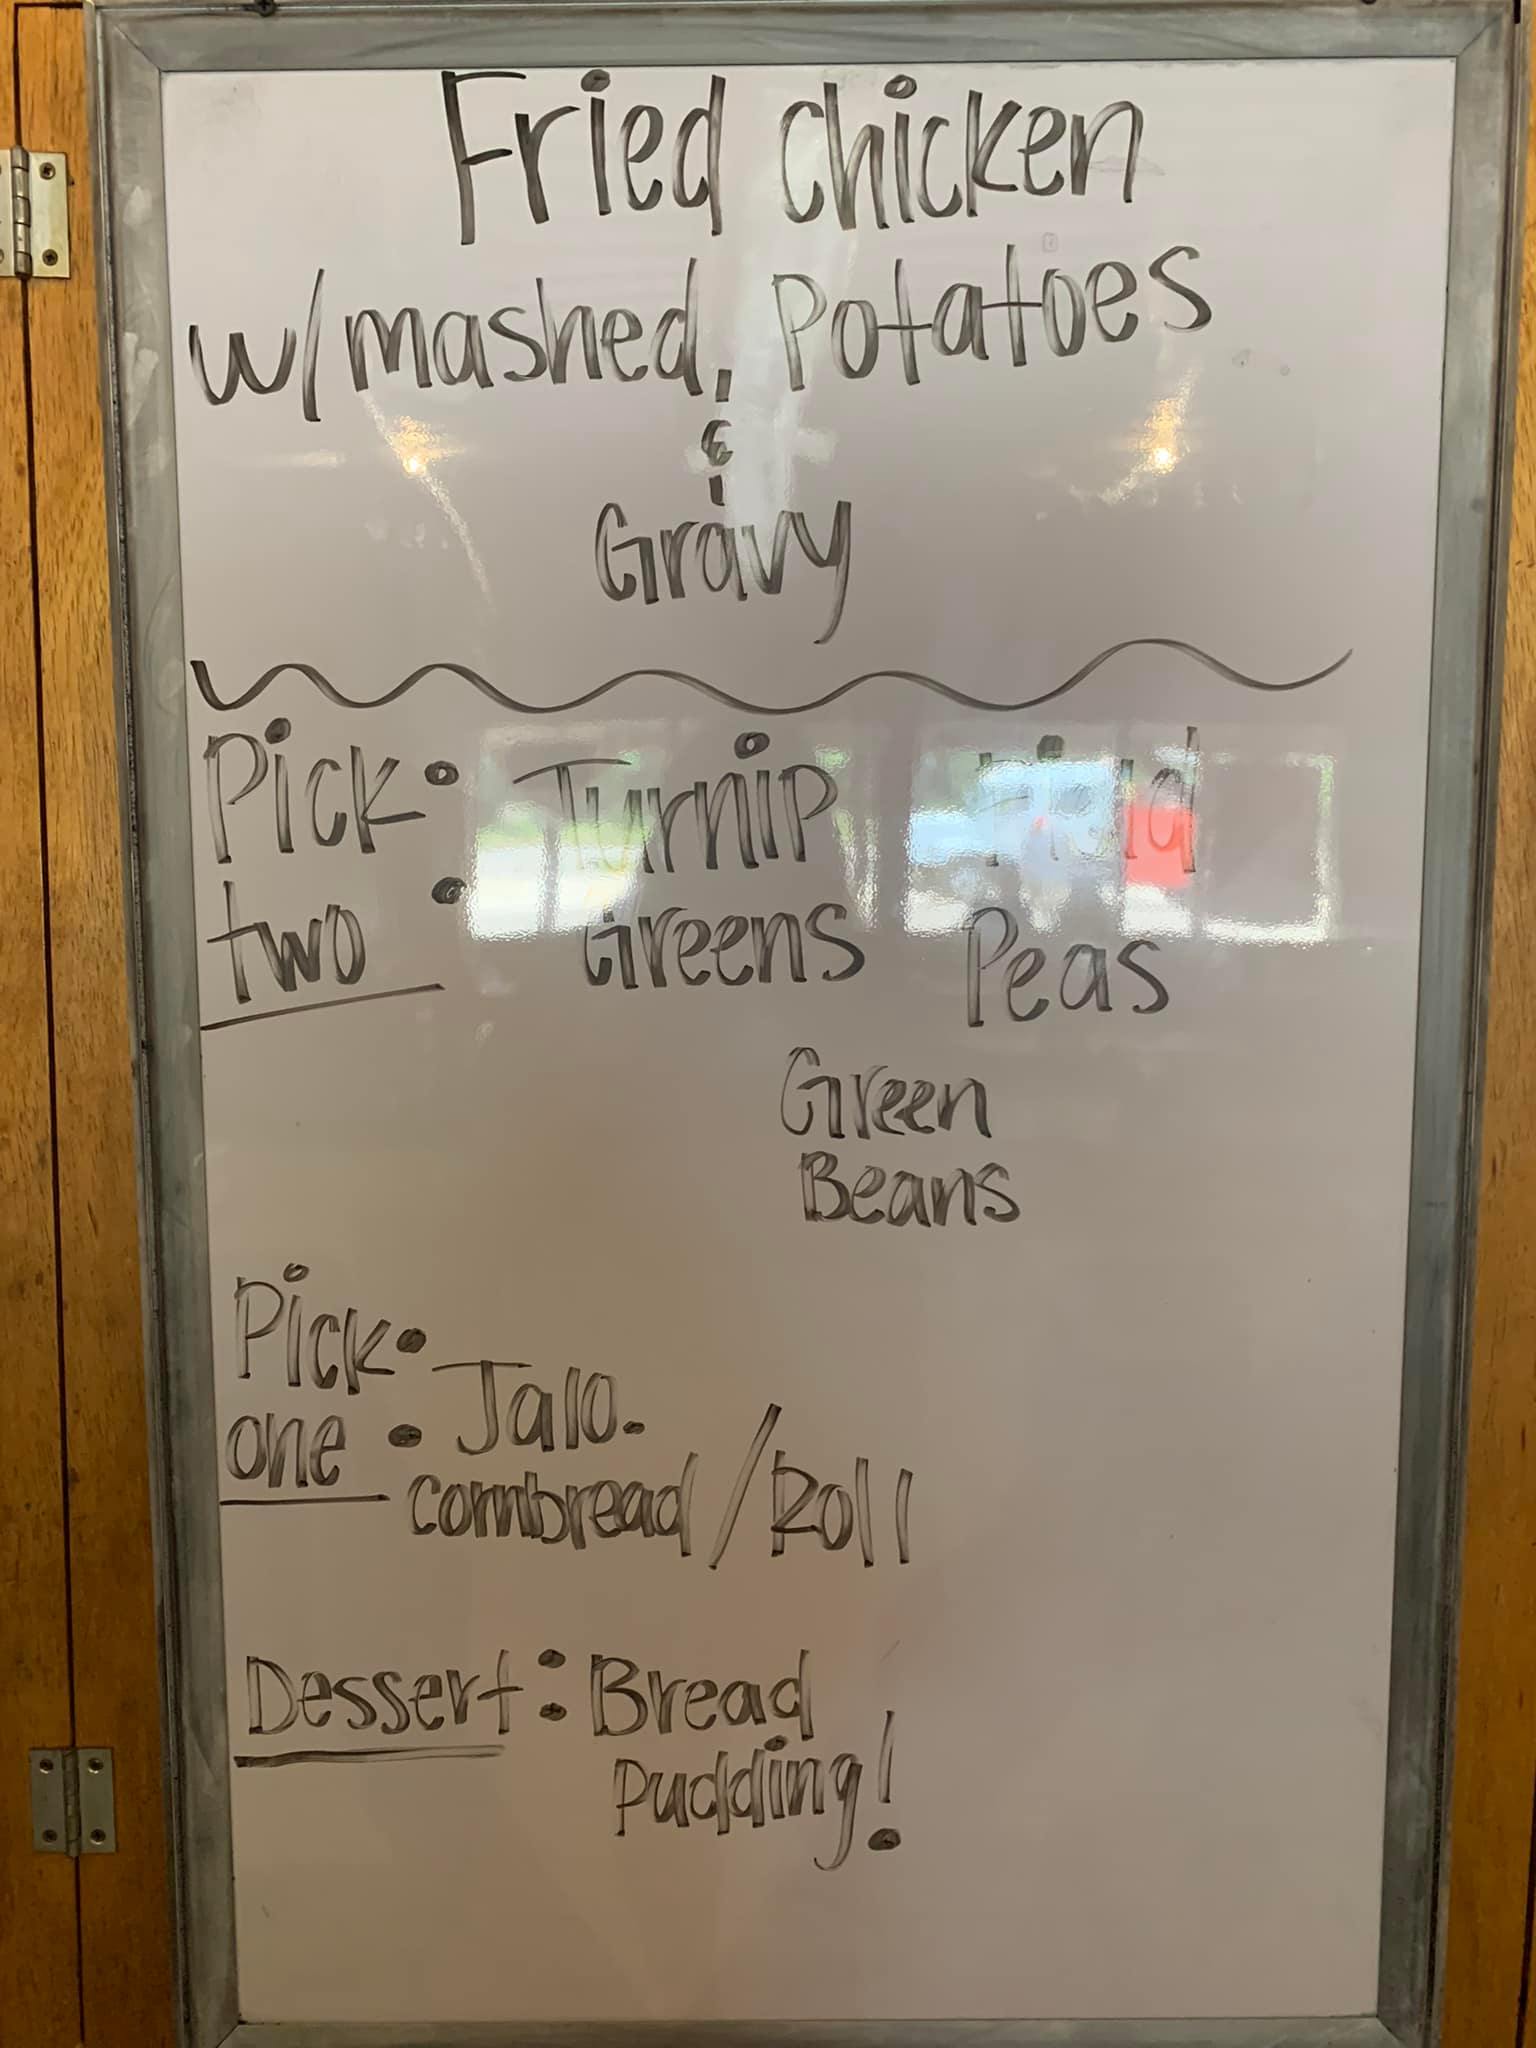 Fried chicken
w/mashed, Potatoes
&
Gravy
Pick: Turnip Field
two: Greens Peas
Green
Beans
Pick:
one: Jalo.
cornbread/Roll
Dessert: Bread
pudding!